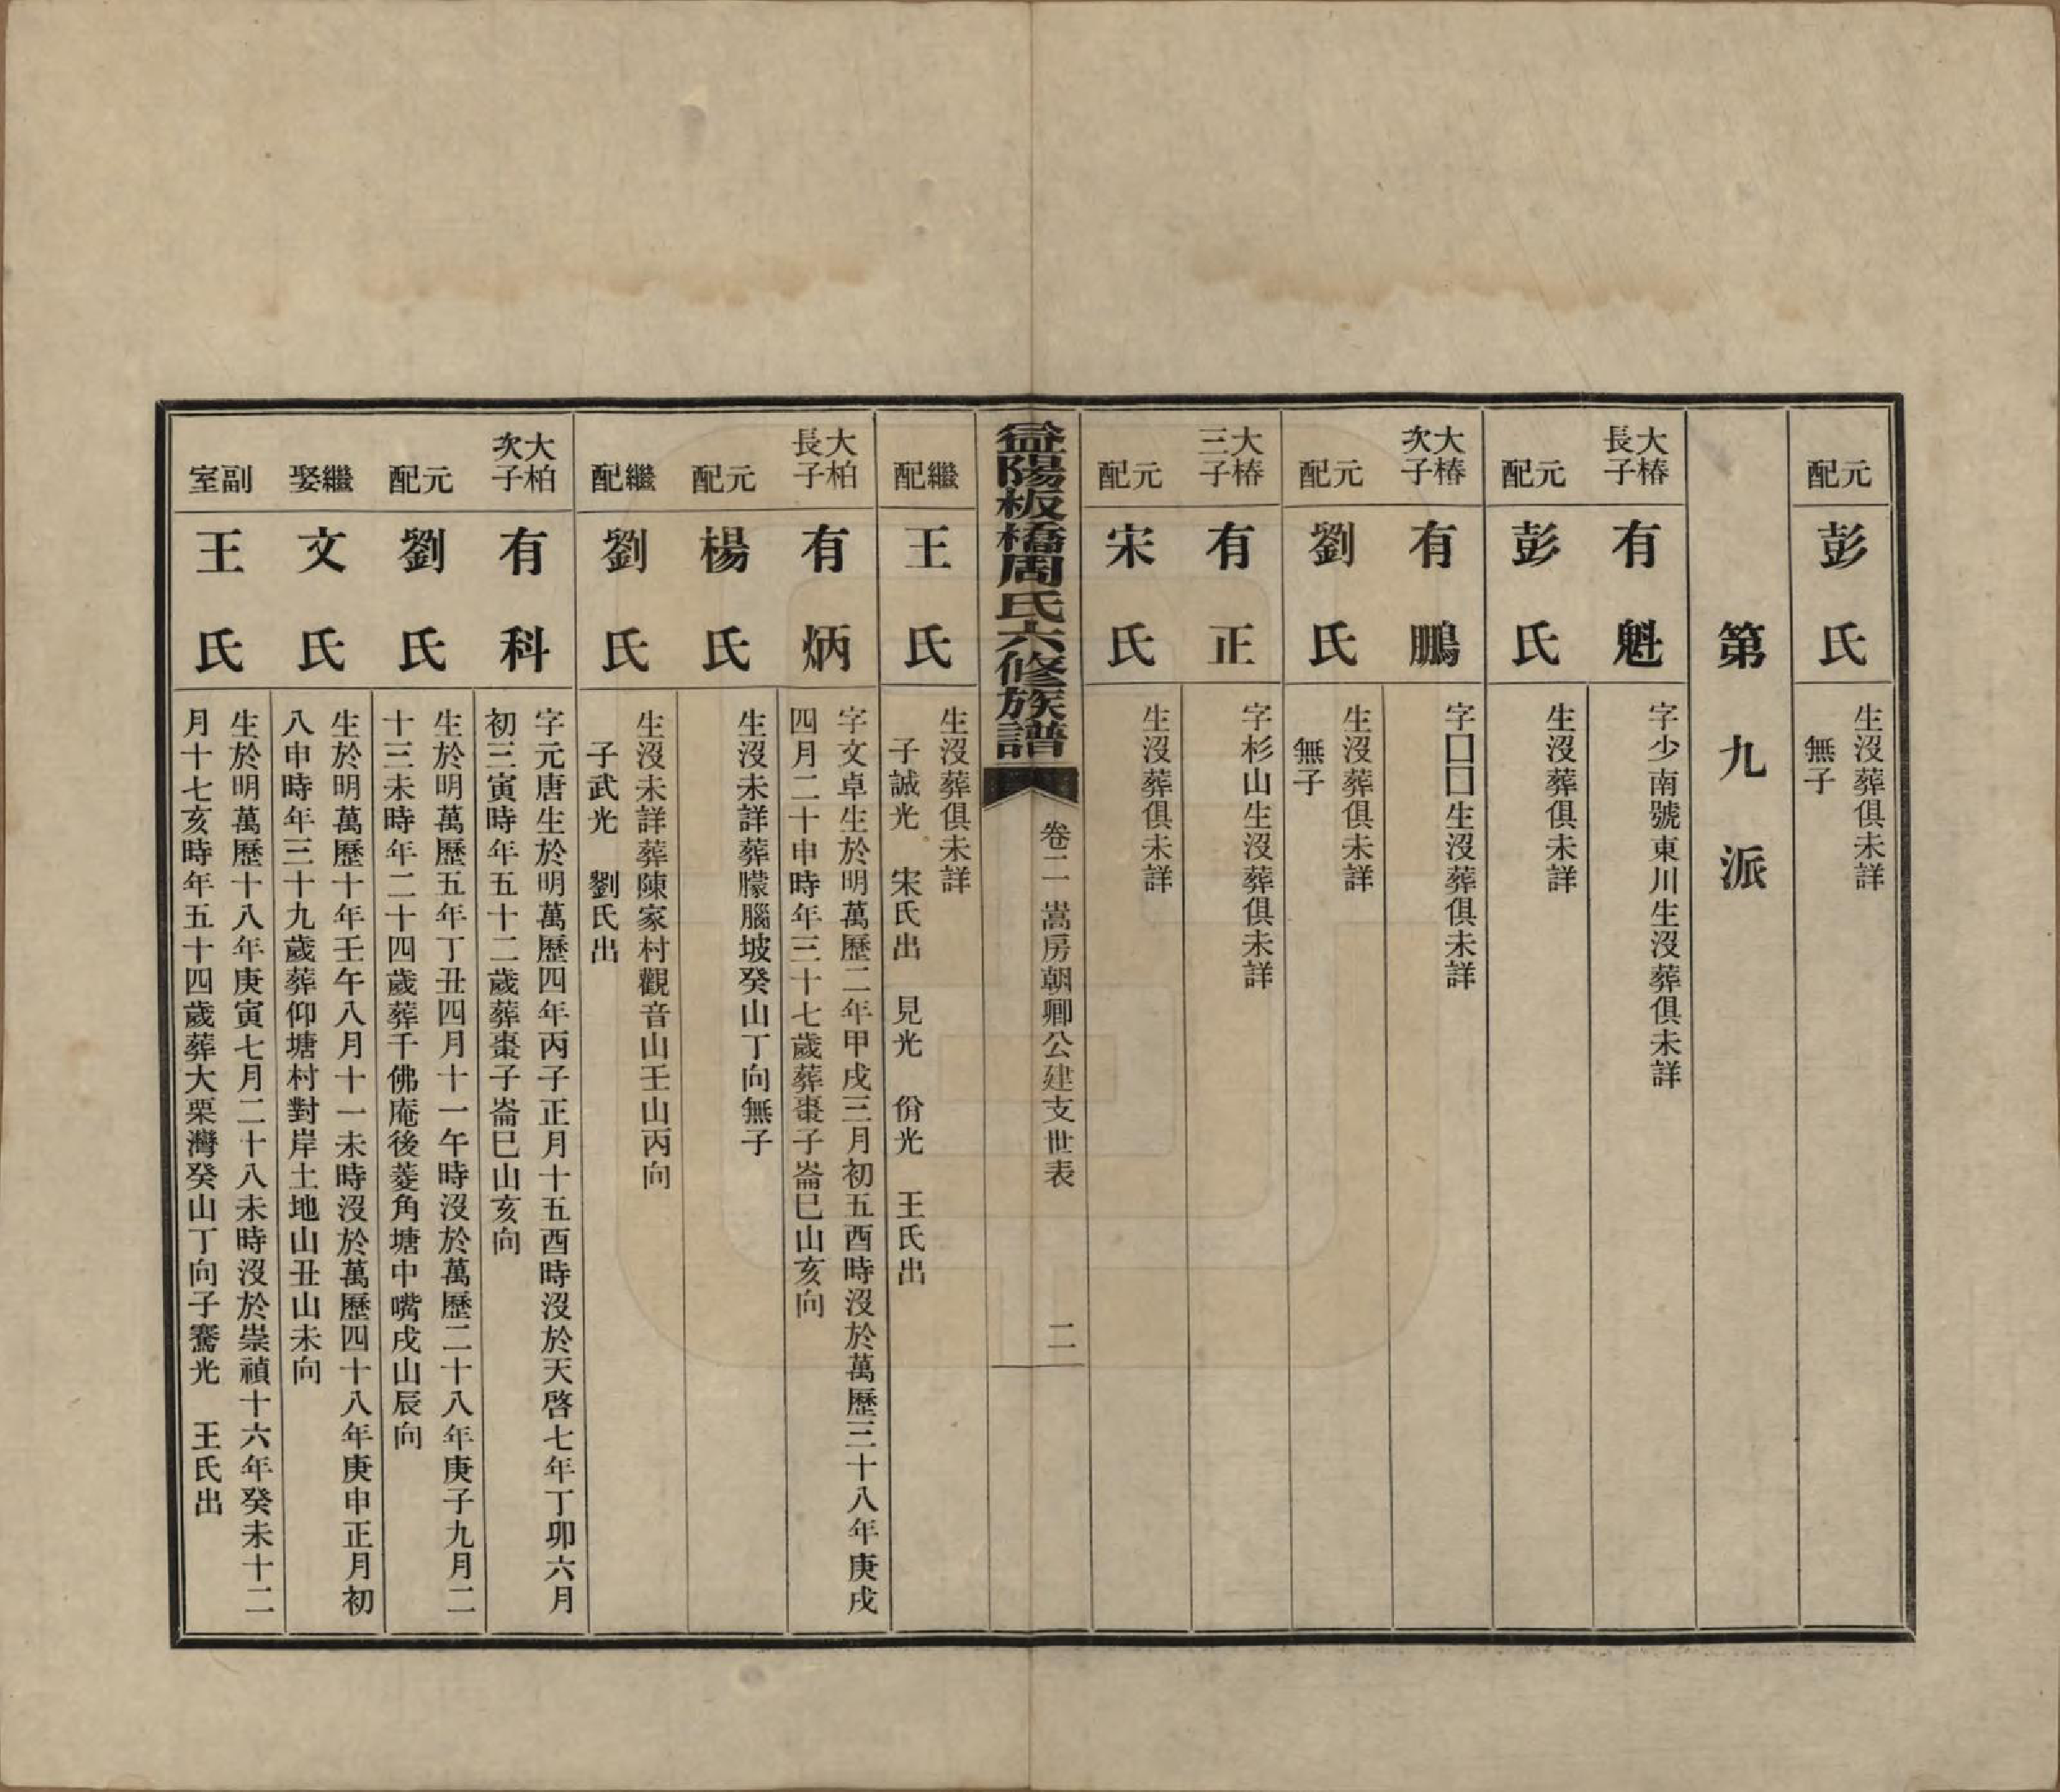 元配
彭氏
生沒葬俱未詳
無子
第九派
大椿
長子
有魁
字少南號東川生沒葬俱未詳
元配
彭氏
生沒葬俱未詳
大椿
次子
有鵬
字囗囗生沒葬俱未詳
元配
劉氏
生沒葬俱未詳
無子
大椿
三子
有正
字杉山生沒葬俱未詳
元配
宋氏
生沒葬俱未詳
益陽板橋周氏六修族譜
卷二 嵩房朝卿公建支世表
二
繼配
王氏
生沒葬俱未詳
子誠光 宋氏出 見光 佾光 王氏出
大柏
長子
有炳
字文卓生於明萬歷二年甲戌三月初五酉時沒於萬歷三十八年庚戌
四月二十申時年三十七歲葬棗子崙巳山亥向
元配
楊氏
生沒未詳葬朦腦坡癸山丁向無子
繼配
劉氏
生沒未詳葬陳家村觀音山壬山丙向
子武光 劉氏出
大柏
次子
有科
字元唐生於明萬歷四年丙子正月十五酉時沒於天啓七年丁卯六月
初三寅時年五十二歲葬棗子崙巳山亥向
元配
劉氏
生於明萬歷五年丁丑四月十一午時沒於萬歷二十八年庚子九月二
十三未時年二十四歲葬千佛庵後菱角塘中嘴戌山辰向
繼娶
文氏
生於明萬歷十年壬午八月十一未時沒於萬歷四十八年庚申正月初
八申時年三十九歲葬仰塘村對岸土地山丑山未向
副室
王氏
生於明萬歷十八年庚寅七月二十八未時沒於崇禎十六年癸未十二
月十七亥時年五十四歲葬大栗灣癸山丁向子騫光 王氏出